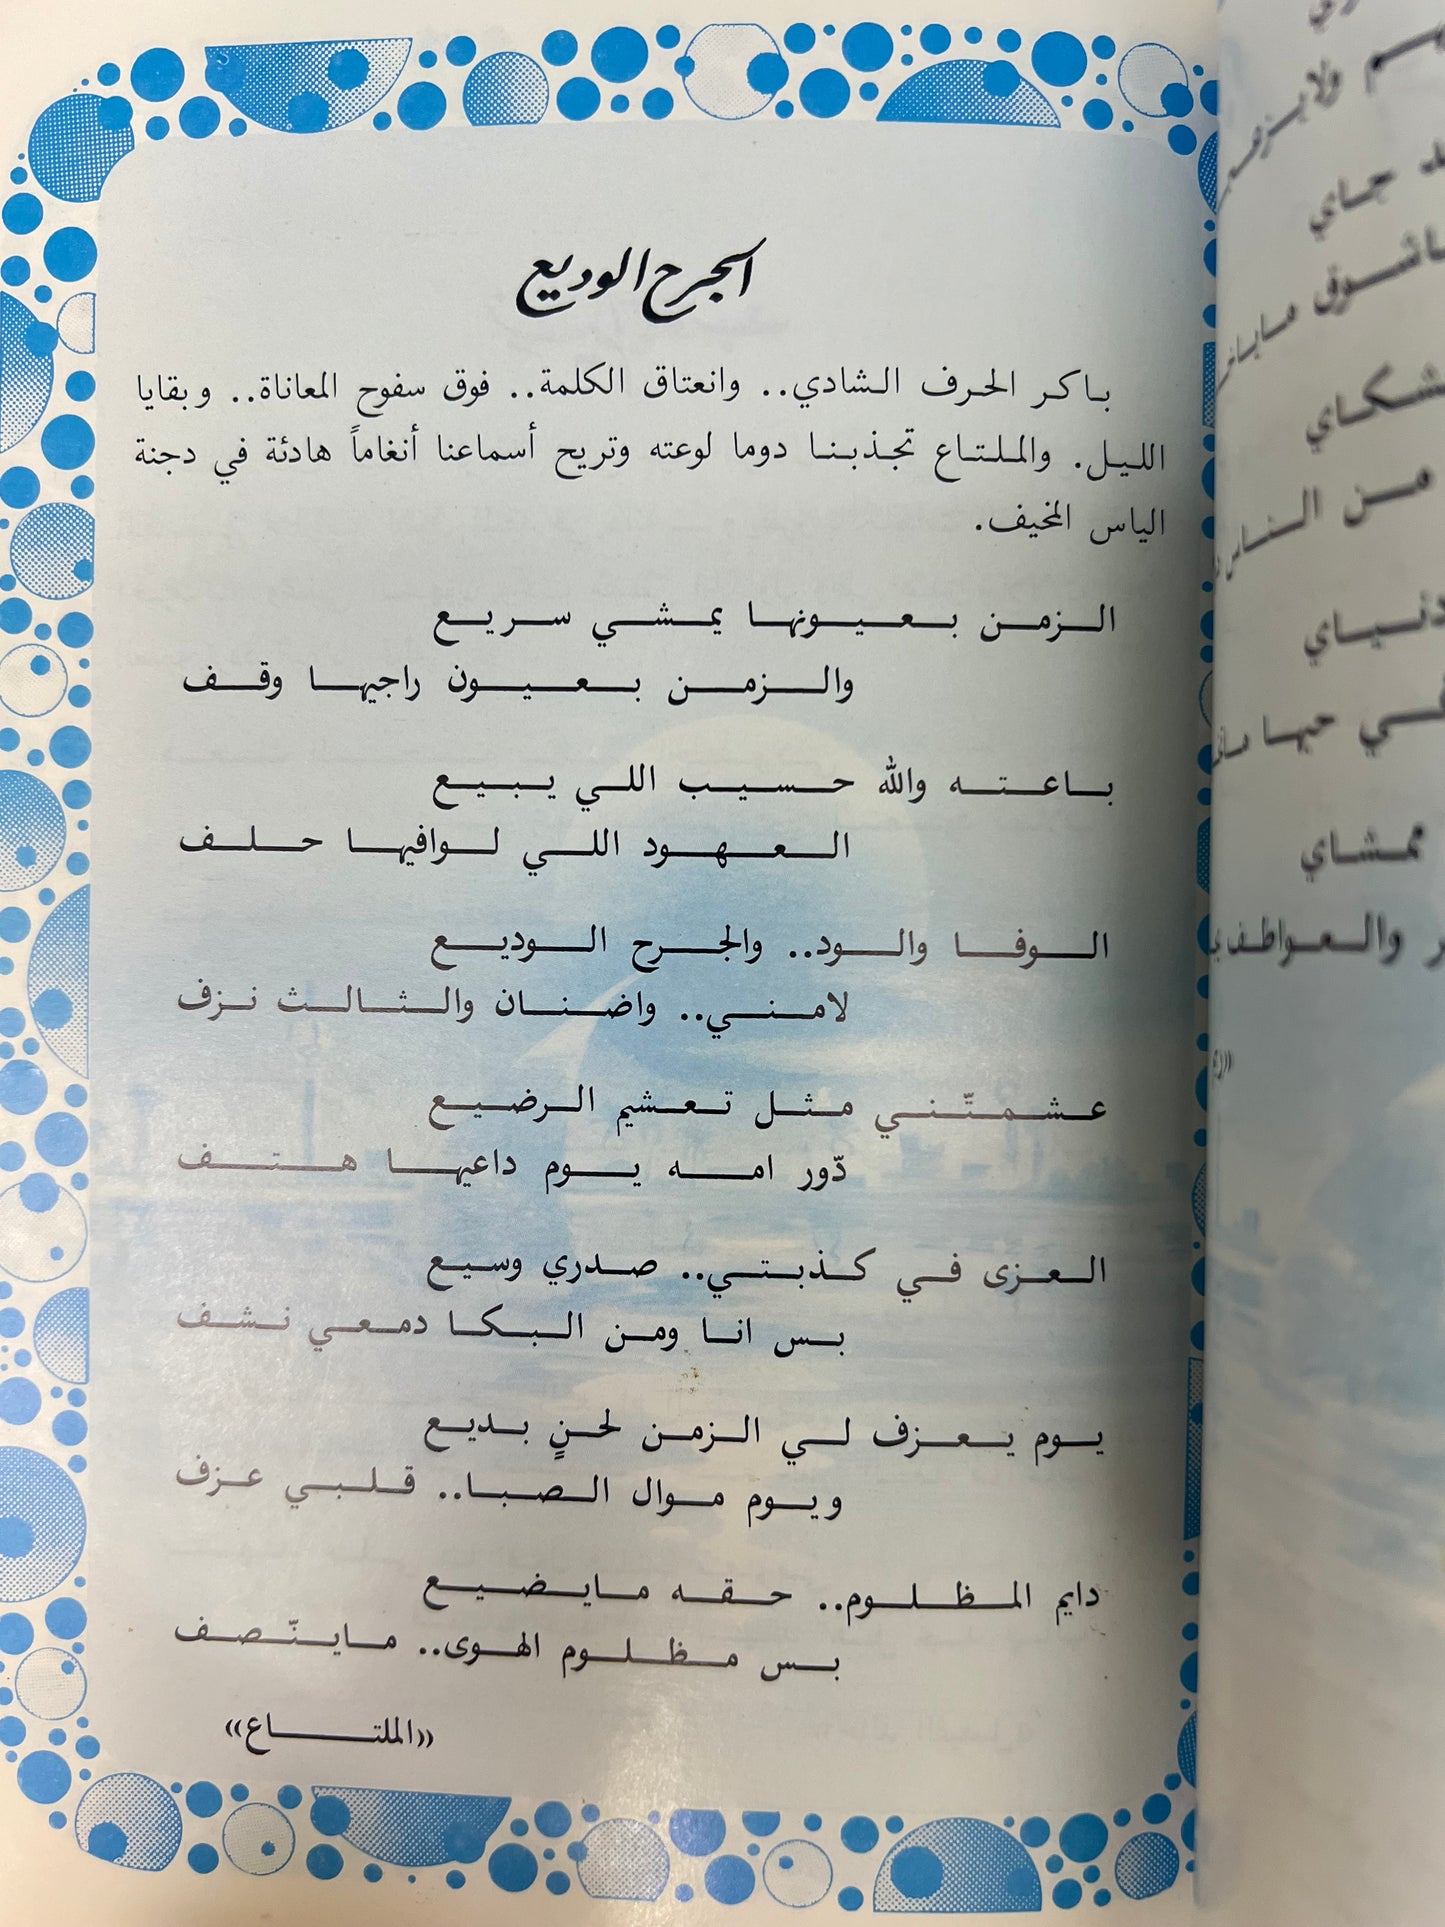 الجرح الوديع
باكر الحرف الشادي.. وانعتاق الكلمة.. فوق سفوح المعاناة.. وبقايا
الليل. والملتاع تجذبنا دوما لوعته وتريح أسماعنا أنغاماً هادئة في دجنة
الياس المخيف.
الزمن بعيونها يمشي سريع
والزمن بعيون راجيها وقف
باعته والله حسيب اللي يبيع
العهود اللي لوافيها حلف
الوفا والود.. والجرح الوديع
لامني.. واضنان والثالث نزف
عشمتّني مثل تعشيم الرضيع
دّور امه يوم داعيها هتف
العزى في كذبتي.. صدري وسيع
بس انا ومن البكا دمعي نشف
يوم يعزف لي الزمن لحنٍ بديع
ويوم موال الصبا.. قلبي عزف
دايم المظلوم.. حقه مايضيع
بس مظلوم الهوى.. ماينّصف
«الملتاع»
جاي
من الناس
ممشاي